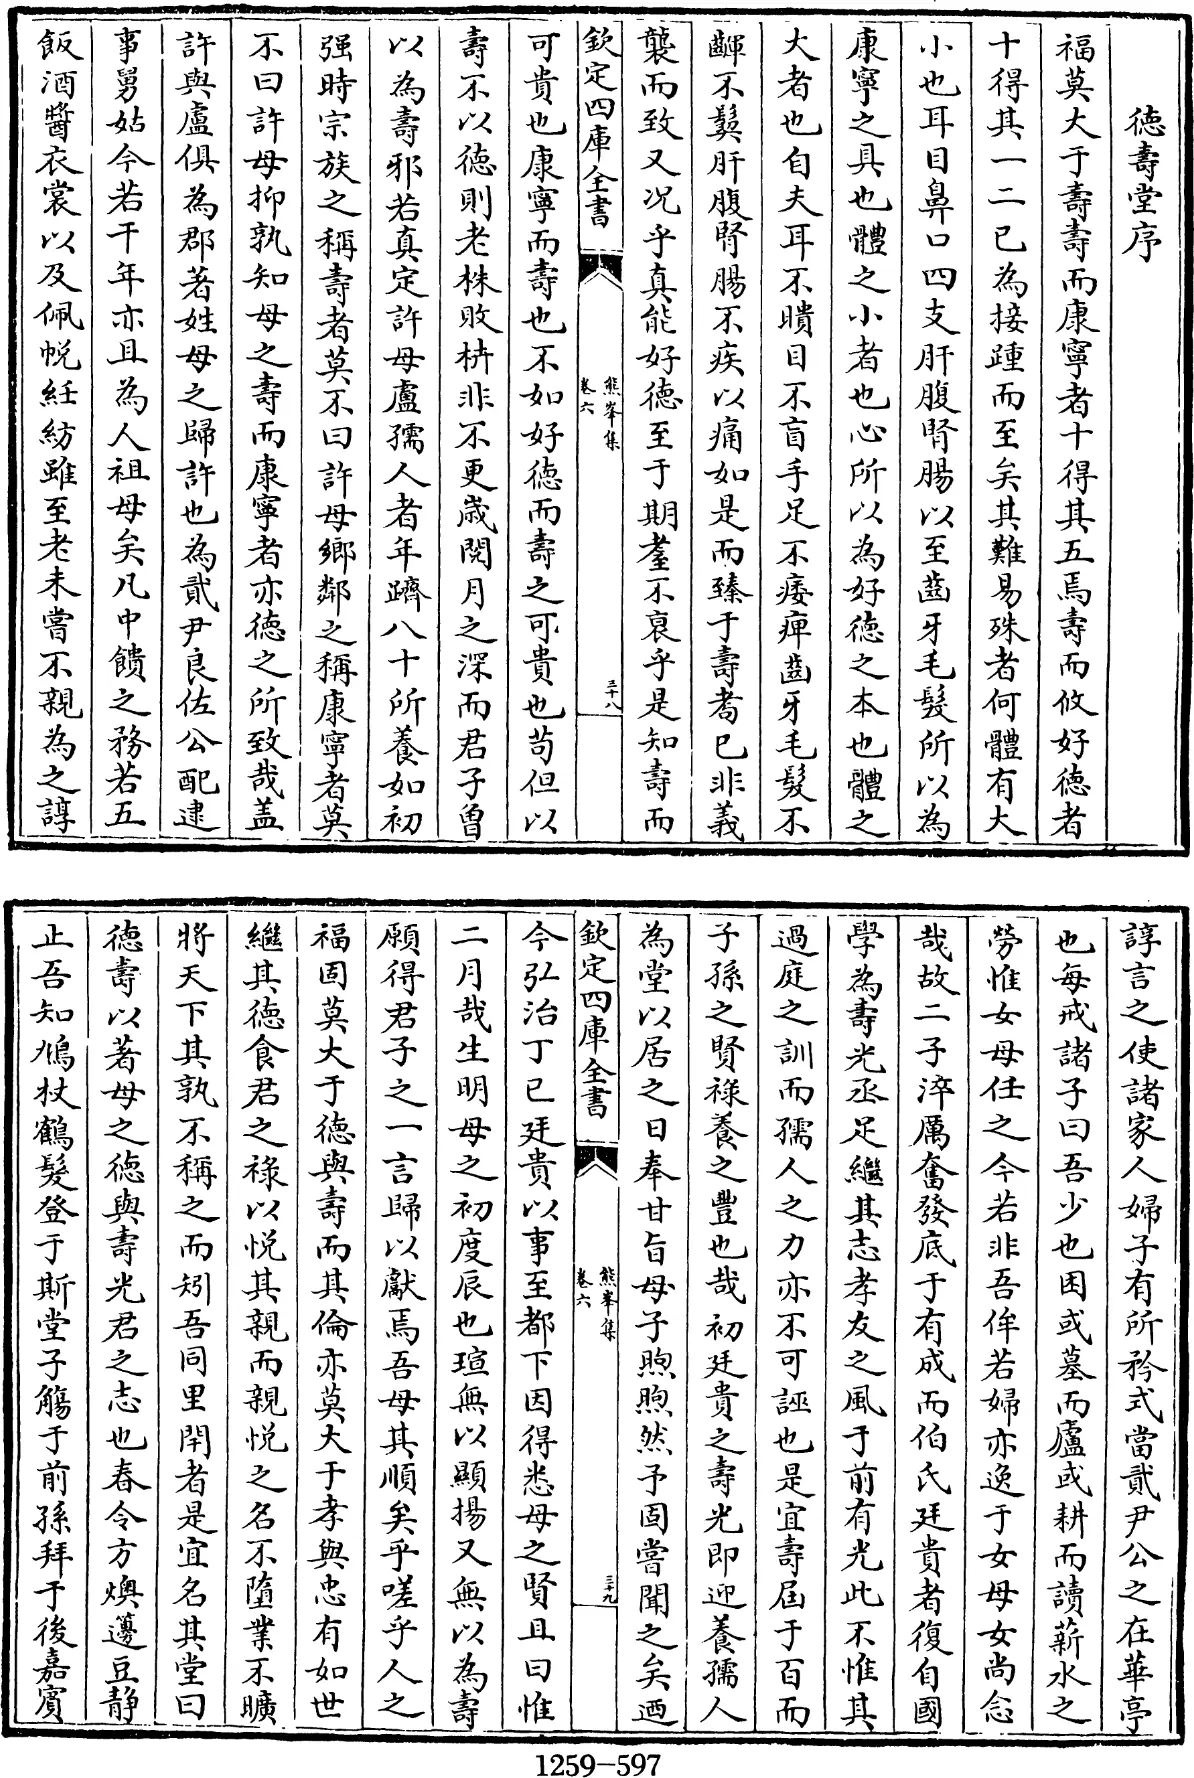 德壽堂序
福莫大于壽壽而康寧者十得其五焉壽而攸好徳者
十得其一二已為接踵而至矣其難易殊者何體有大
小也耳目鼻口四支肝腹腎腸以至齒牙毛髮所以為
康寧之具也體之小者也心所以為好徳之本也體之
大者也自夫耳不聵目不盲手足不痿痺齒牙毛髮不
齳不鬒肝腹腎腸不疾以痛如是而臻于壽耇已非義
襲而致又况乎真能好徳至于期耋不衰乎是知壽而
欽定四庫全書
熊峯集
卷六
三十八
可貴也康寧而壽也不如好徳而壽之可貴也苟但以
壽不以徳則老株敗枿非不更嵗閱月之深而君子曽
以為壽邪若真定許母盧孺人者年躋八十所養如初
强時宗族之稱壽者莫不曰許母鄉鄰之稱康寧者莫
不曰許母抑孰知母之壽而康寧者亦徳之所致哉盖
許與盧俱為郡著姓母之歸許也為貳尹良佐公配逮
事舅姑今若干年亦且為人祖母矣凡中饋之務若五
飯酒醬衣裳以及佩帨紝紡雖至老未嘗不親為之諄
諄言之使諸家人婦子有所矜式當貳尹公之在華亭
也每戒諸子曰吾少也困或墓而廬或耕而讀薪水之
勞惟女母任之今若非吾侔若婦亦逸于女母女尚念
哉故二子淬厲奮發底于有成而伯氏廷貴者復自國
學為壽光丞足繼其志孝友之風于前有光此不惟其
過庭之訓而孺人之力亦不可誣也是宜壽屆于百而
子孫之賢祿養之豐也哉初廷貴之壽光即迎養孺人
為堂以居之日奉甘旨母子煦煦然予固嘗聞之矣迺
欽定四庫全書
熊峯集
卷六
三十九
今弘治丁已廷貴以事至都下因得悉母之賢且曰惟
二月哉生明母之初度辰也瑄無以顯揚又無以為壽
願得君子之一言歸以獻焉吾母其順矣乎嗟乎人之
福固莫大于徳與壽而其倫亦莫大于孝與忠有如世
繼其徳食君之祿以悦其親而親悦之名不墮業不曠
將天下其孰不稱之而矧吾同里閈者是宜名其堂曰
徳壽以著母之徳與壽光君之志也春令方燠籩豆静
止吾知鳩杖鶴髪登于斯堂子觴于前孫拜于後嘉賓
1259-597